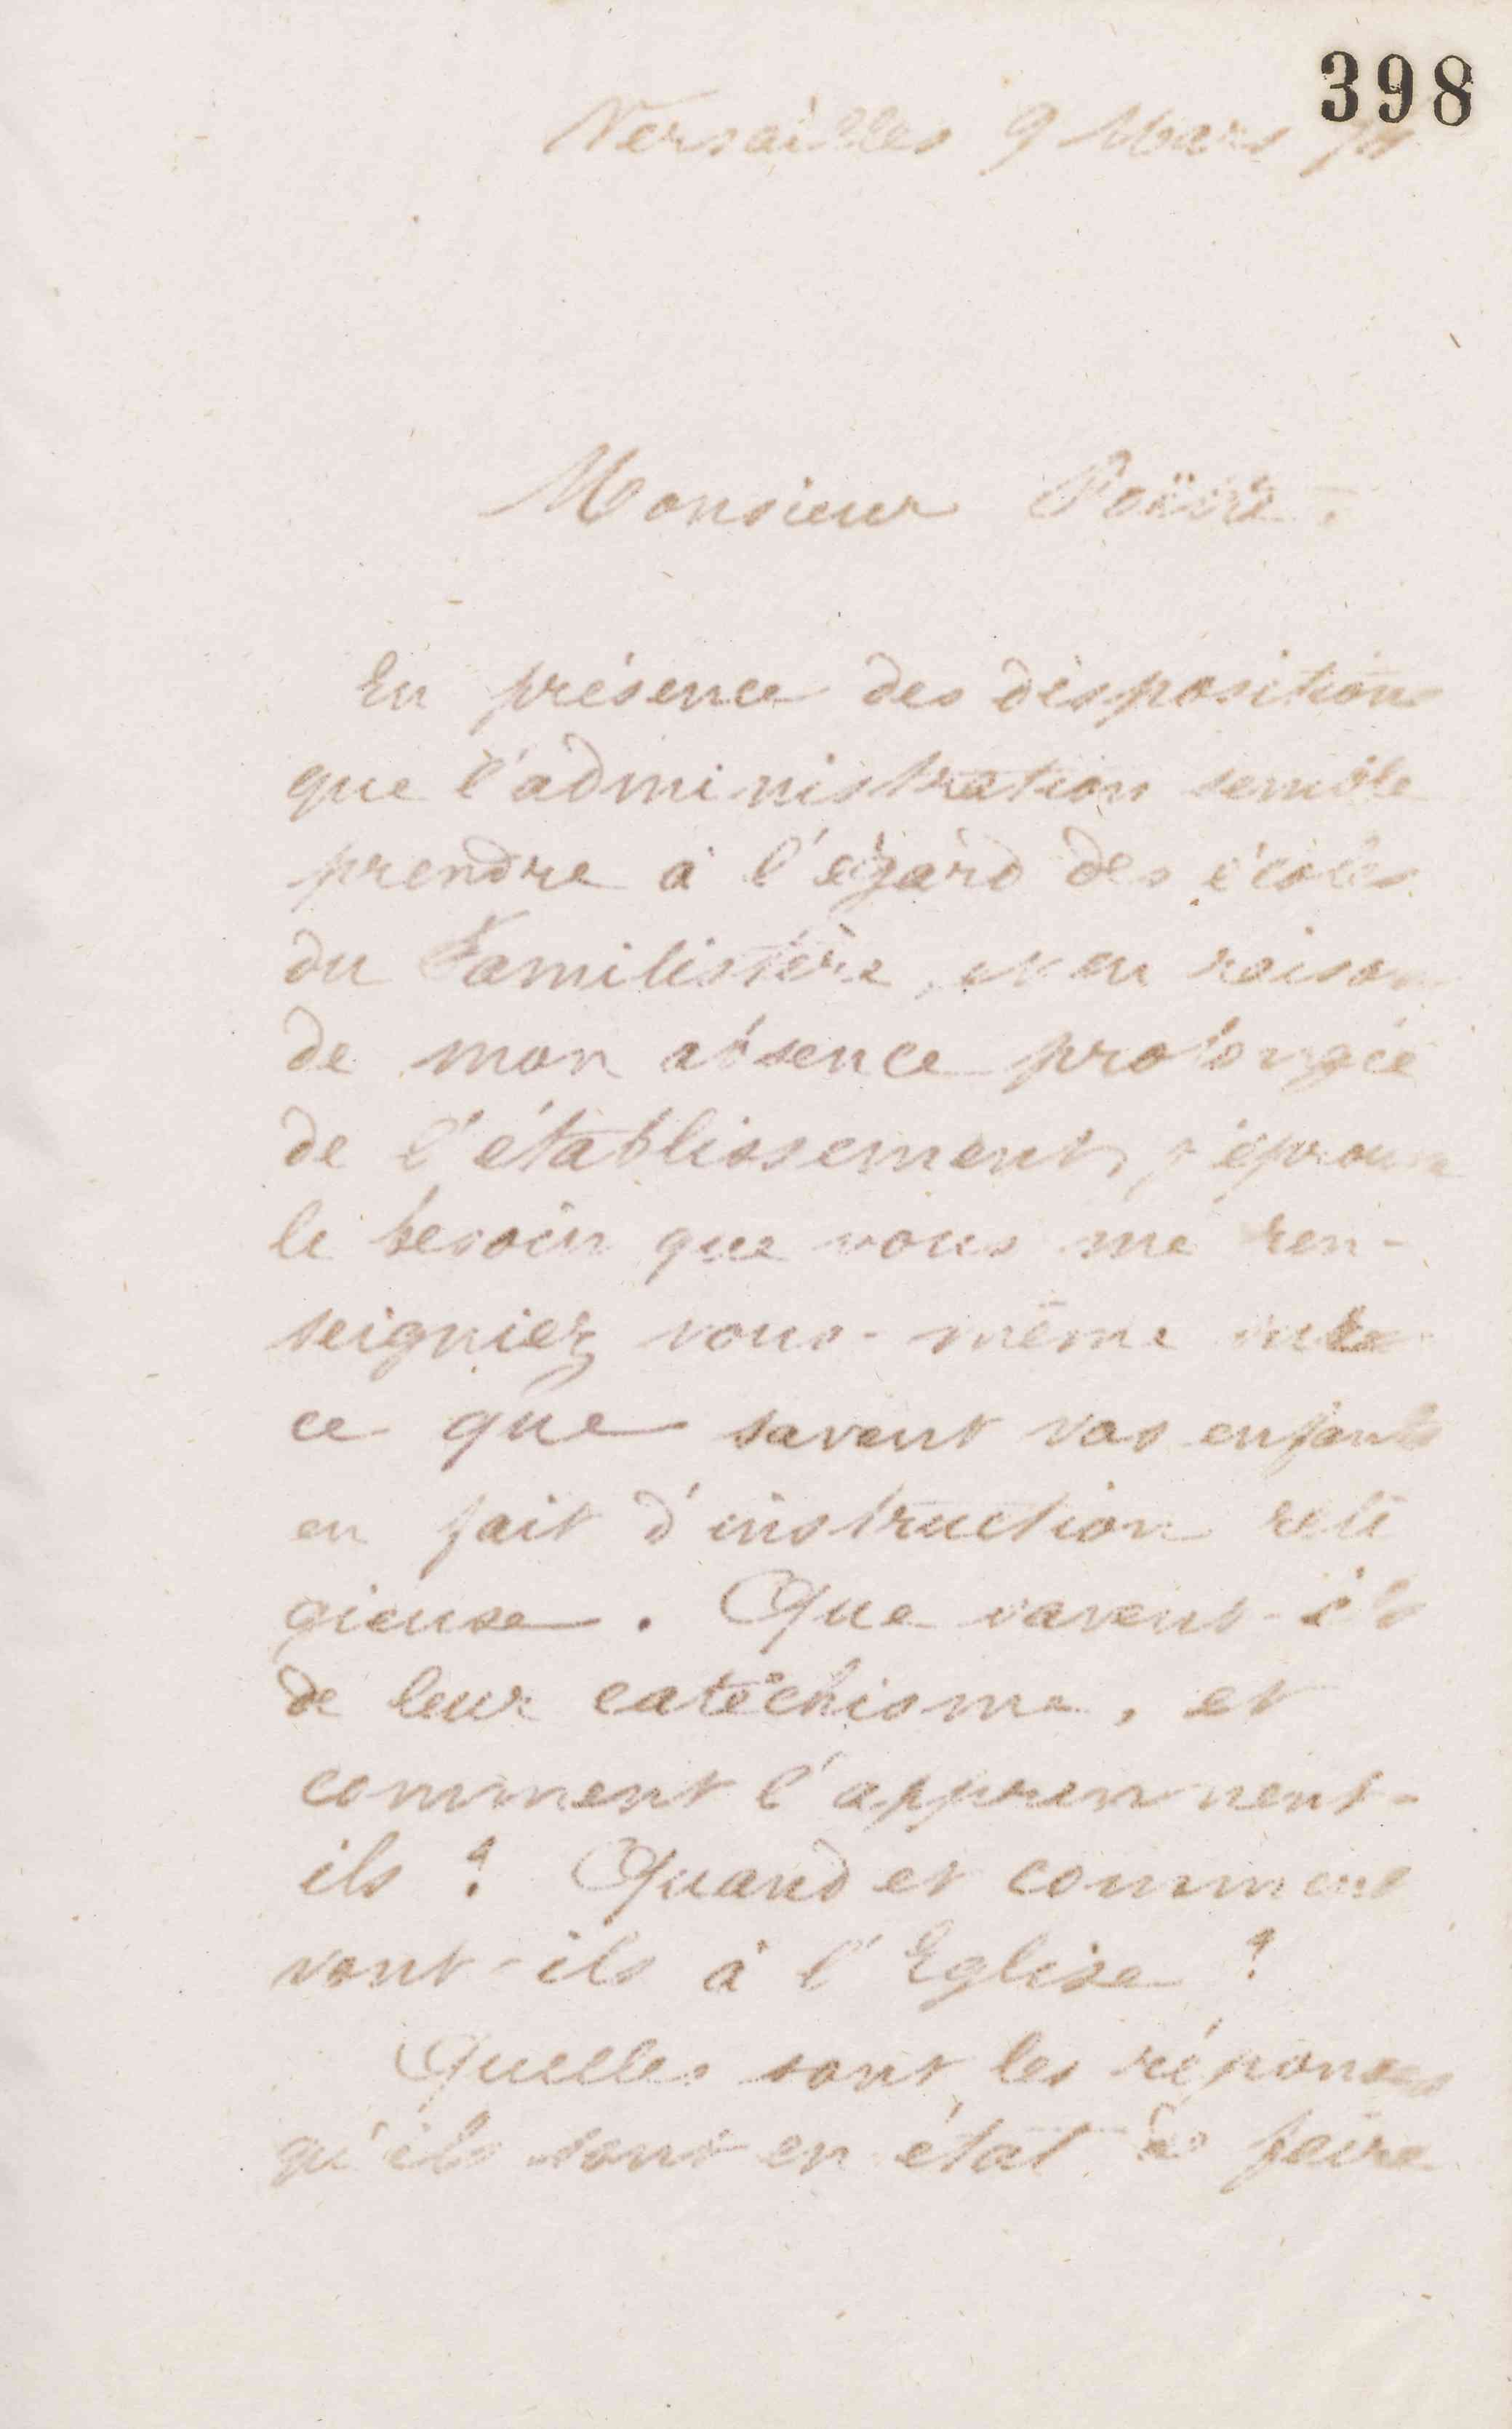 398
Versailles 9 Mars
Monsieur
En présence des dispositions
que l'administration semble
prendre à l'égard des écoles
du Familistère, et en raison
de mon absence prolongée
de l'établissement, j'éprouve
le besoin que vous me ren-
seigniez vous-même sur
ce que savent vos enfants
en fait d'instruction reli
gieuse. Que savent-ils
de leur catéchisme, et
comment l'apprennent-
ils ? Quand et comment
vont-ils à l'Eglise ?
Quelles sont les réponses
qu'ils sont en état de faire